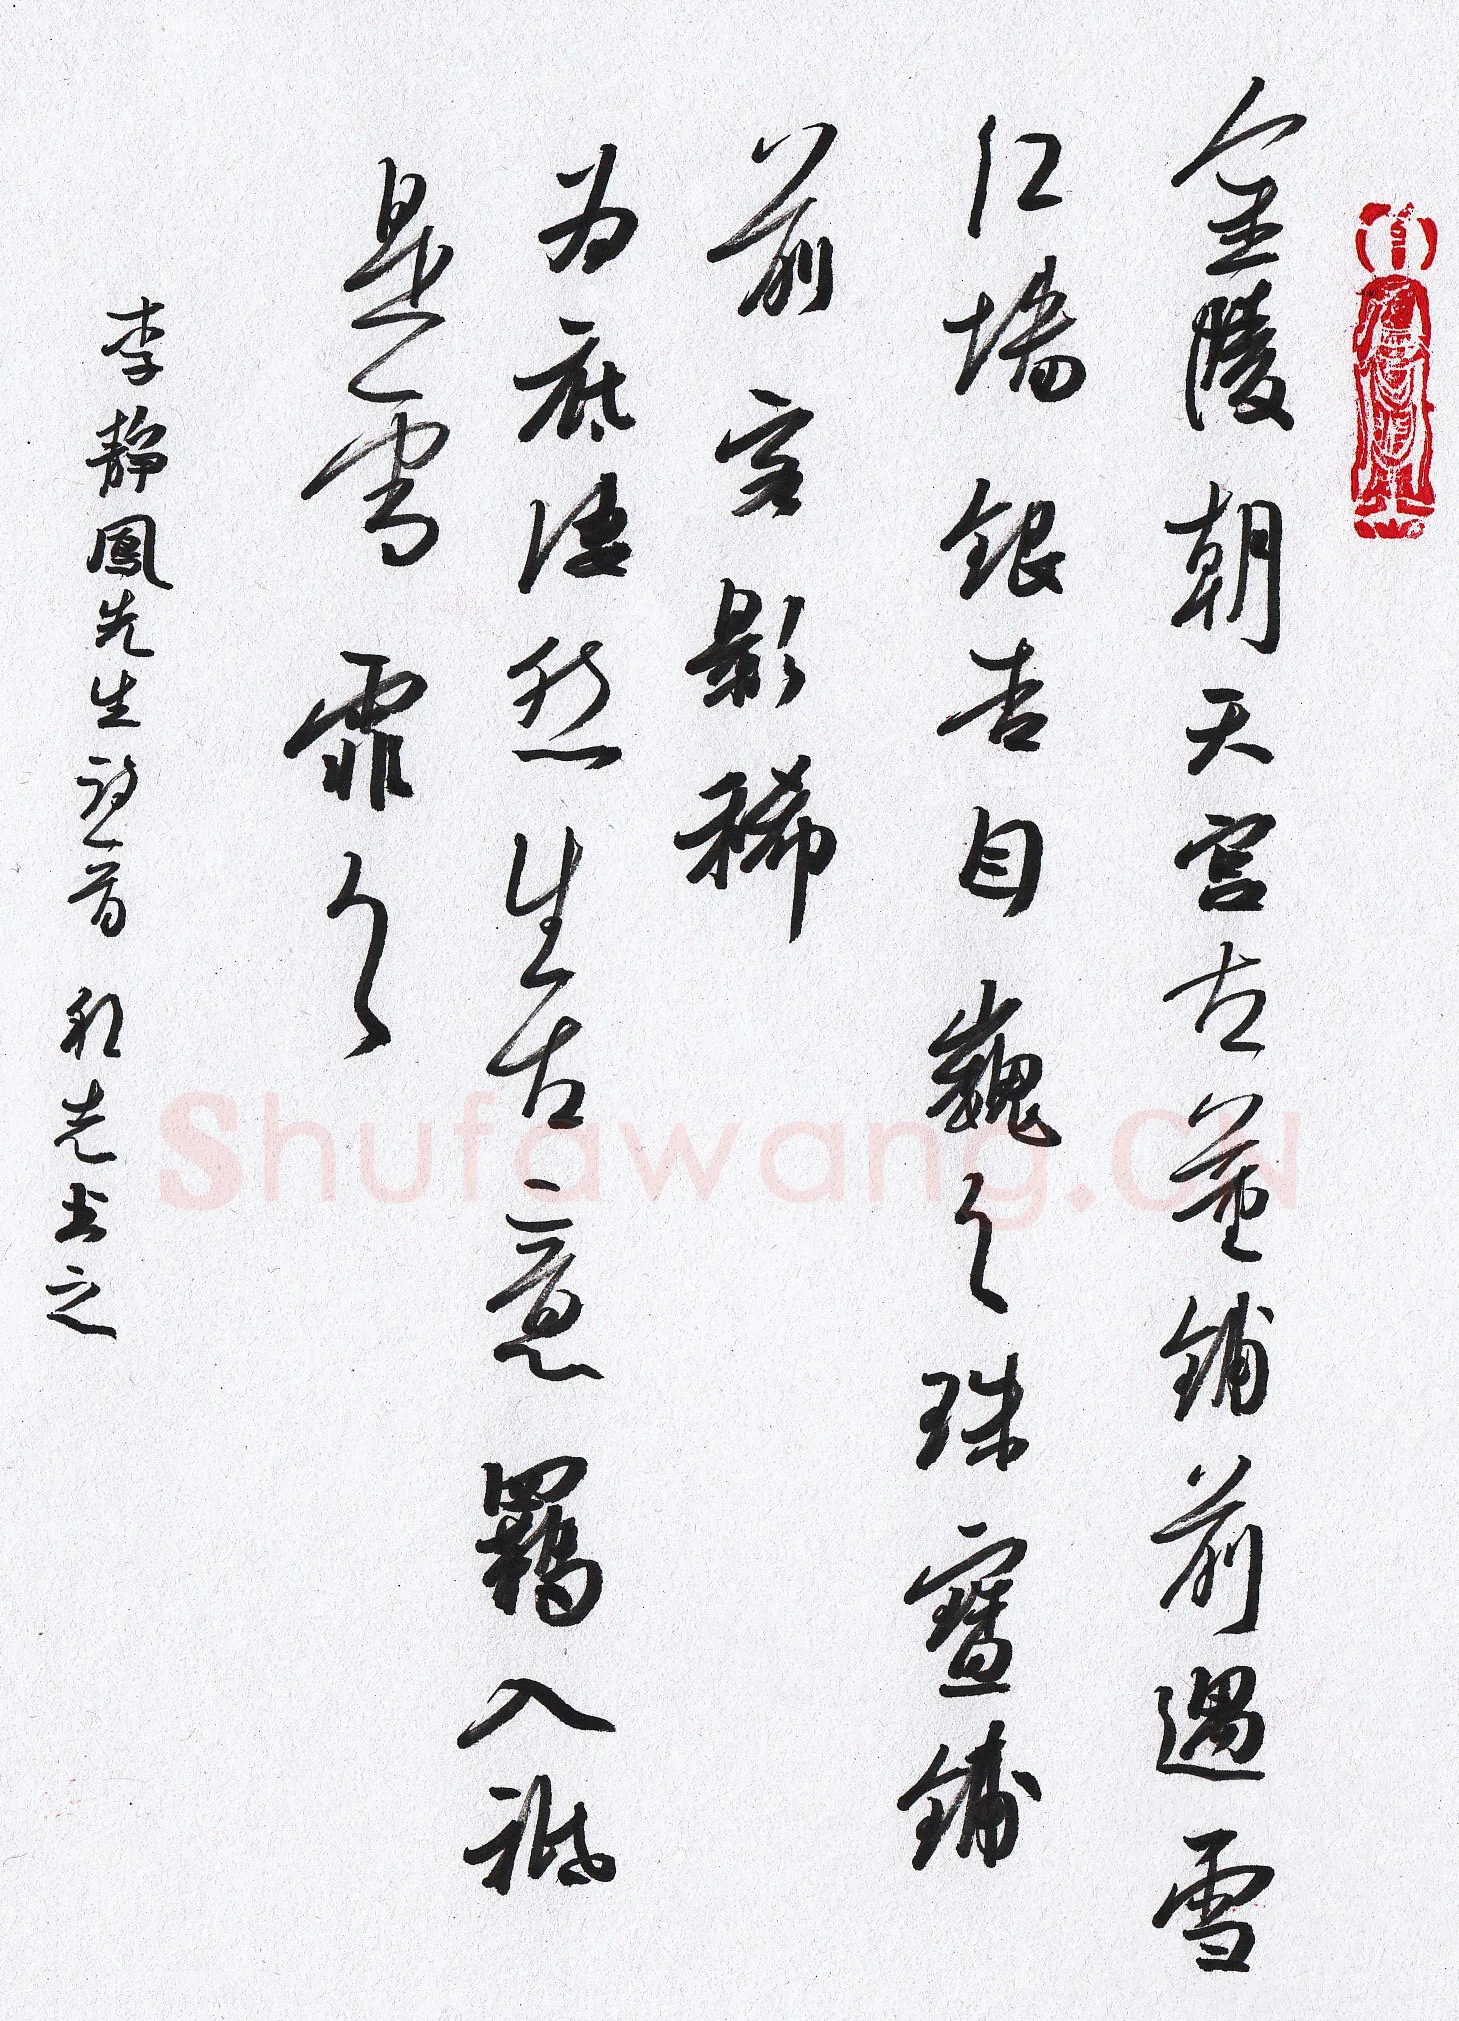 金陵朝天宫古董铺前遇雪
红墙银杏自巍々珠宝铺
前客影稀
为底凄然生古意羁入祇
是雪霏々
李静凤先生诗一首
Shufawang.CN